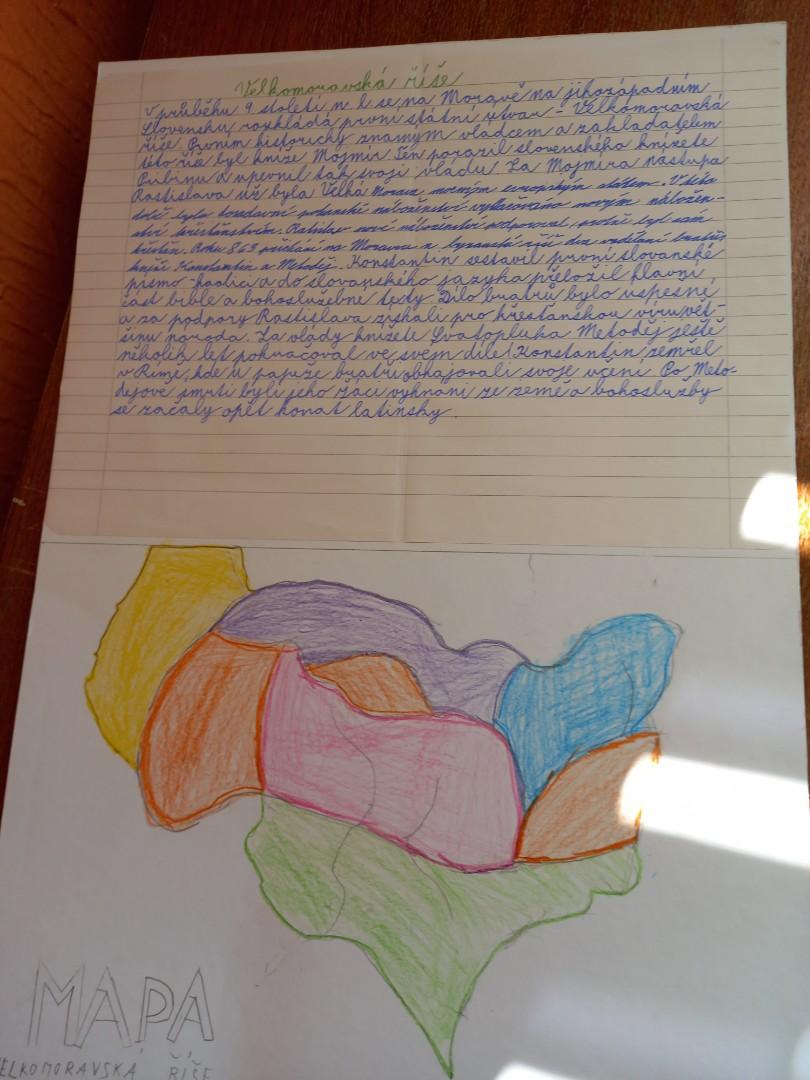 Velkomoravská říše
V průběhu 9 století n. l. se na Moravě na jihozápadním
Slovensku rozkládá první státní útvar - Velkomoravská
říše. Prvním historicky známým vládcem a zakladatelem
této říše byl kníže Mojmír. Ten porazil slovenského knížete
Pribinu a upevnil tak svoji vládu. Za Mojmíra nástupce
Rastislava už byla Velká Morava mocným evropským státem. V této
době bylo dosavadní pohanské náboženství vytlačováno novým nábožen-
stvím křesťanstvím. Ratislav nové náboženství podporoval, protože byl sám
křtěn. Roku 863 přicházejí na Moravu z byzanské říše dva vzdělaní bratři
kněží Konstantin a Metoděj. Konstantin sestavil první slovanské
písmo - a do slovanského jazyka přeložil hlavní
část bible a bohoslužebné texty Dílo bratrů bylo úspěšné
a za podpory Rastislava získali pro křesťanskou víru vět-
šinu národa. Za vlády knížete Svatopluka Metoděj ještě
několik let pokračoval ve svém díle. Konstantin zemřel
v Římě, kde u papeže bratři obhajovali svoje učení Po Meto-
dějově smrti byli jeho žáci vyhnáni ze země a bohoslužby
se začaly opět konat latinsky.
MAPA
VELKOMORAVSKÁ ŘÍŠE